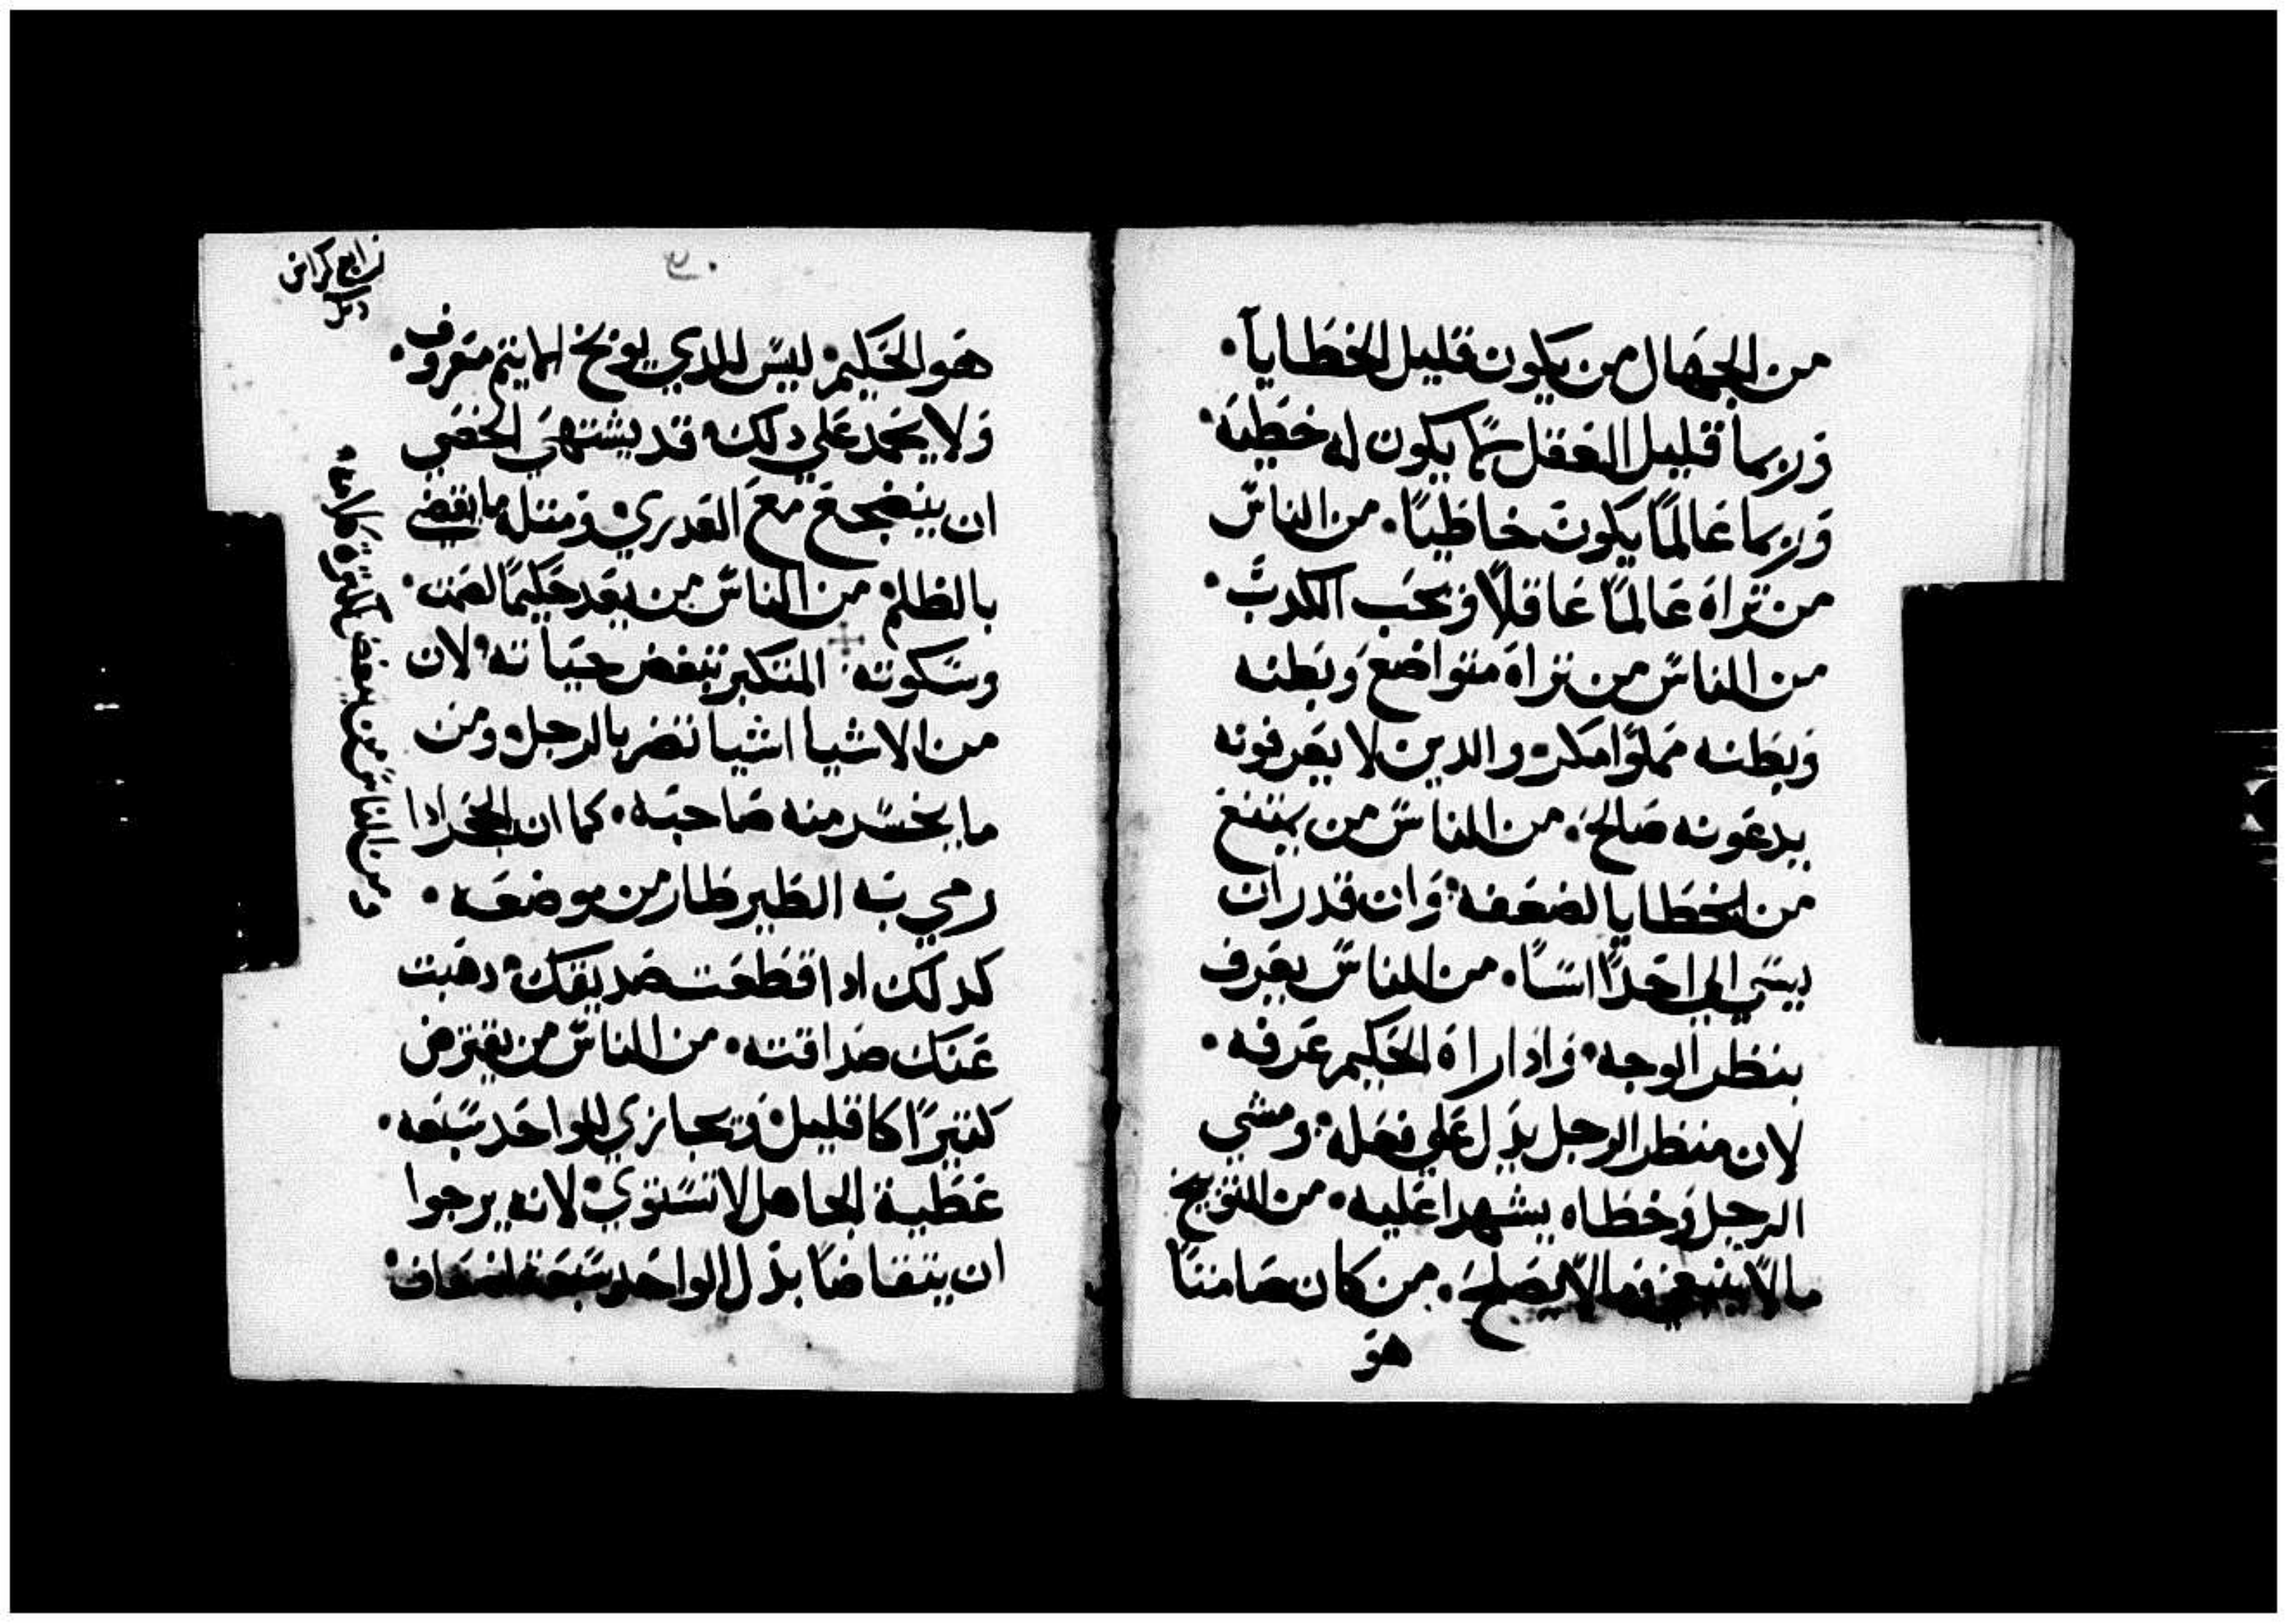 من الجهال من يكون قليل الخطايا.
وربما قليل العقل ربما يكون له خطيه.
وربما عالمًا يكون خاطيًا. من الناس
من تراه عالمًا عاقلًا ويحب الكدب.
من الناس من تراه متواضع وبطنه
وبطنه مملوا مكر. والدين لا يعرفونه
يدعونه صالح. من الناس من يمتنع
من الخطايا لضعفه. وان قدر ان
يسي الي احدًا اسا. من الناس يعرف
بنظر الوجه. وادا راه الحكيم عرفه.
لان منظر الرجل يدل علي فعله. ومشي
الرجل وخطاه يشهدا عليه. من التوبيخ
مالا ينبغي ومالا يصلح. من كان صامتًا
هو
رابع كراس
هو الحكيم. ليس للدي يوبخ اليتيم معروف.
ولا يحمد علي دلك. قد يشتهي الخصي
ان ينضجع مع العدري. ومتله ما يقضي
بالظلم. من الناس من يعد حكيمًا لصمت.
وسكوته. المتكبر تبغض حياته. لان
من الاشيا اشيا تضر بالرجل. ومن
ما يخسر منه صاحبه. كما ان الحجر ادا
رمي به الطير طار من موضعه.
كدلك ادا قطعت صديقك. دهبت
عنك صداقته. من الناس من يقترض
كتيرًا كا قليل. ويجازي للواحد سبعه.
عطية الجاهل لا تستوي. لانه يرجوا
ان يتقاضا بدل الواحد سبعة اضعاف.
ومن الناس من يبغض لكترة كلامه.